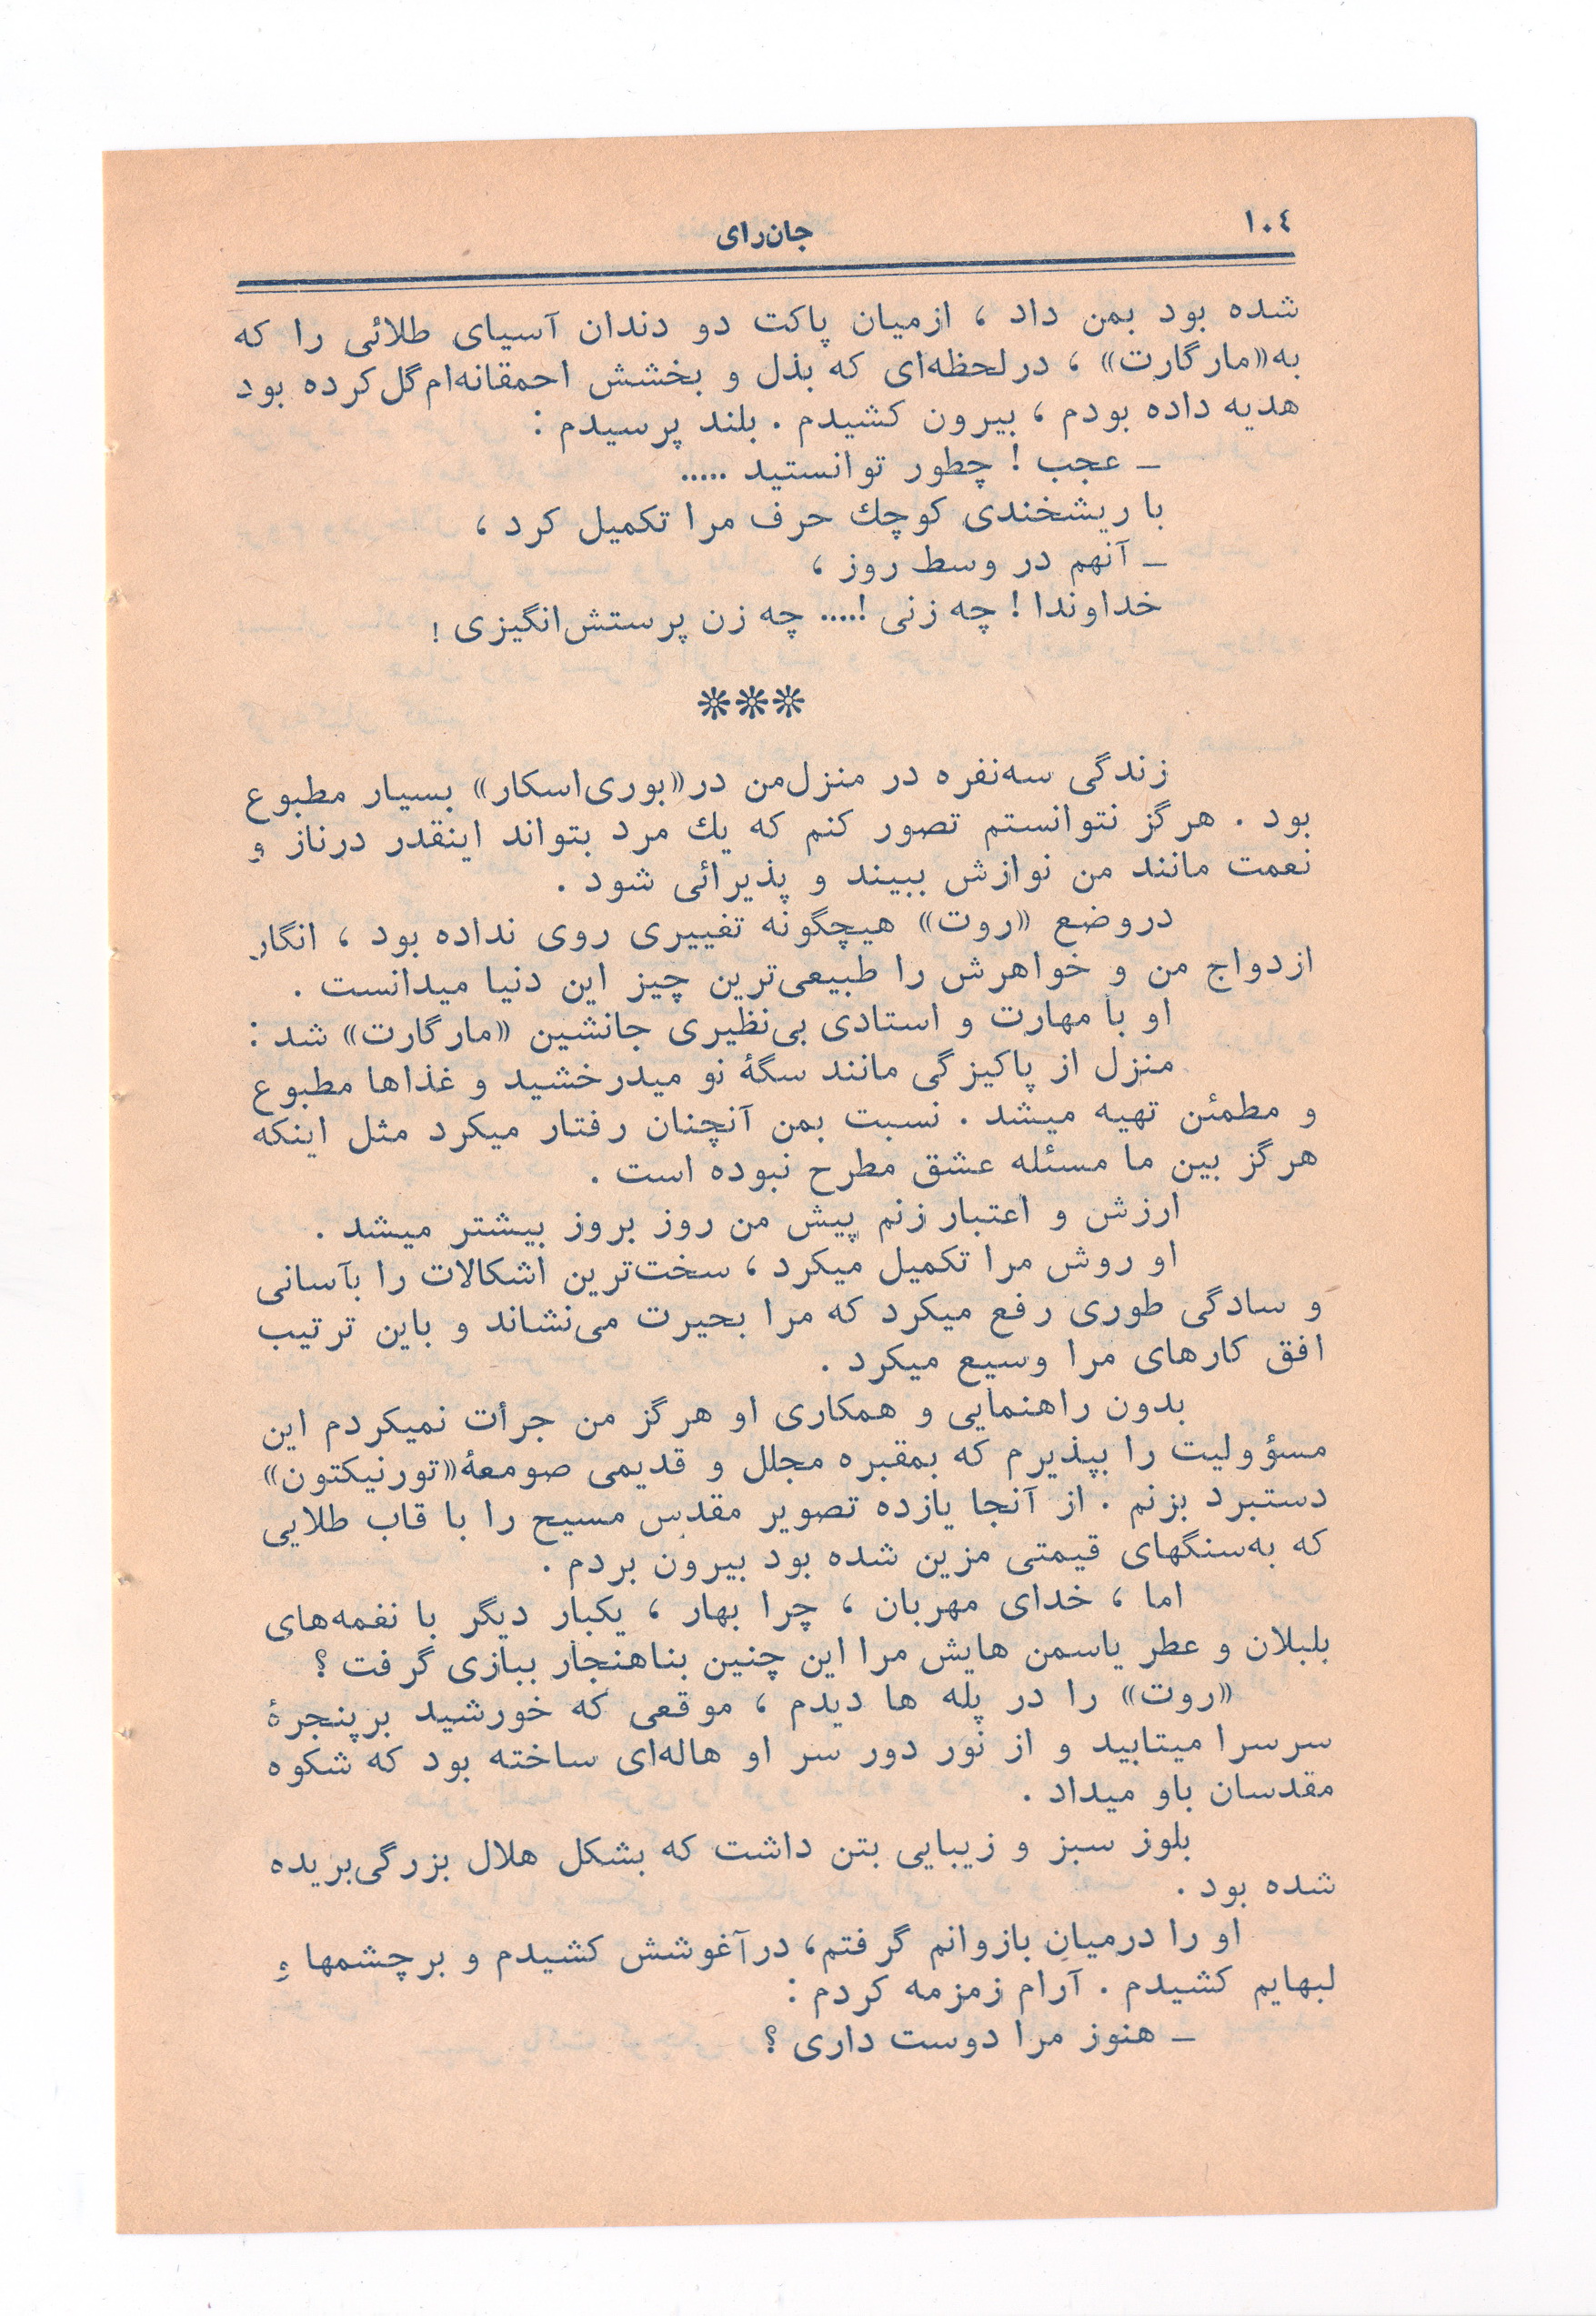 ١٠٤
جان‌رای
شده بود بمن داد ، ازمیان پاکت دو دندان آسیای طلائی را که
به«مارگارت» ، درلحظه‌ای که بذل و بخشش احمقانه‌ام گل کرده بود
هدیه داده بودم ، بیرون کشیدم . بلند پرسیدم :
ــ عجب ! چطور توانستید .....
با ریشخندی کوچك حرف مرا تکمیل کرد ،
ــ آنهم در وسط روز ،
خداوندا ! چه زنی !.... چه زن پرستش‌انگیزی !
❊❊❊
زندگی سه‌نفره در منزل‌من در«بوری‌اسکار» بسیار مطبوع
بود . هرگز نتوانستم تصور کنم که یك مرد بتواند اینقدر درناز و
نعمت مانند من نوازش ببیند و پذیرائی شود .
دروضع «روت» هیچگونه تغییری روی نداده بود ، انگار
ازدواج من و خواهرش را طبیعی‌ترین چیز این دنیا میدانست .
او با مهارت و استادی بی‌نظیری جانشین «مارگارت» شد :
منزل از پاکیزگی مانند سگهٔ نو میدرخشید و غذاها مطبوع
و مطمئن تهیه میشد . نسبت بمن آنچنان رفتار میکرد مثل اینکه
هرگز بین ما مسئله عشق مطرح نبوده است .
ارزش و اعتبار زنم پیش من روز بروز بیشتر میشد .
او روش مرا تکمیل میکرد ، سخت‌ترین اشکالات را بآسانی
و سادگی طوری رفع میکرد که مرا بحیرت می‌نشاند و باین ترتیب
افق کارهای مرا وسیع میکرد .
بدون راهنمایی و همکاری او هرگز من جرأت نمیکردم این
مسؤولیت را بپذیرم که بمقبره مجلل و قدیمی صومعهٔ«تورنیکتون»
دستبرد بزنم . از آنجا یازده تصویر مقدس مسیح را با قاب طلایی
که به‌سنگهای قیمتی مزین شده بود بیرون بردم .
اما ، خدای مهربان ، چرا بهار ، یکبار دیگر با نغمه‌های
بلبلان و عطر یاسمن هایش مرا این چنین بناهنجار ببازی گرفت ؟
«روت» را در پله ها دیدم ، موقعی که خورشید برپنجرهٔ
سرسرا میتابید و از نور دور سر او هاله‌ای ساخته بود که شکوه
مقدسان باو میداد .
بلوز سبز و زیبایی بتن داشت که بشکل هلال بزرگی‌بریده
شده بود .
او را درمیان بازوانم گرفتم، درآغوشش کشیدم و برچشمها و
لبهایم کشیدم . آرام زمزمه کردم :
ــ هنوز مرا دوست داری ؟